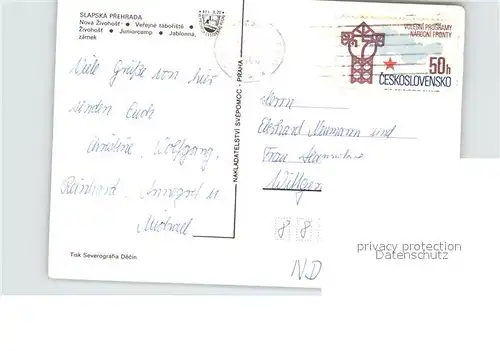 SLAPSKÁ PŘEHRADA
Nová Živohošť • Veřejné tábořiště •
Živohošť • Juniorcamp • Jablonna,
zámek
Viele Grüße von hier
senden Euch
Christine, Wolfgang,
Reinhard, Annegret u
Michael
Tisk Severografia Děčín
NAKLADATELSTVÍ SVÉPOMOC - PRAHA
VOLEBNÍ PROGRAMY
NÁRODNÍ FRONTY
50h
ČESKOSLOVENSKO
Herrn
Ekkehard Neumann und
Frau
8 8
privacy protection
Datenschutz